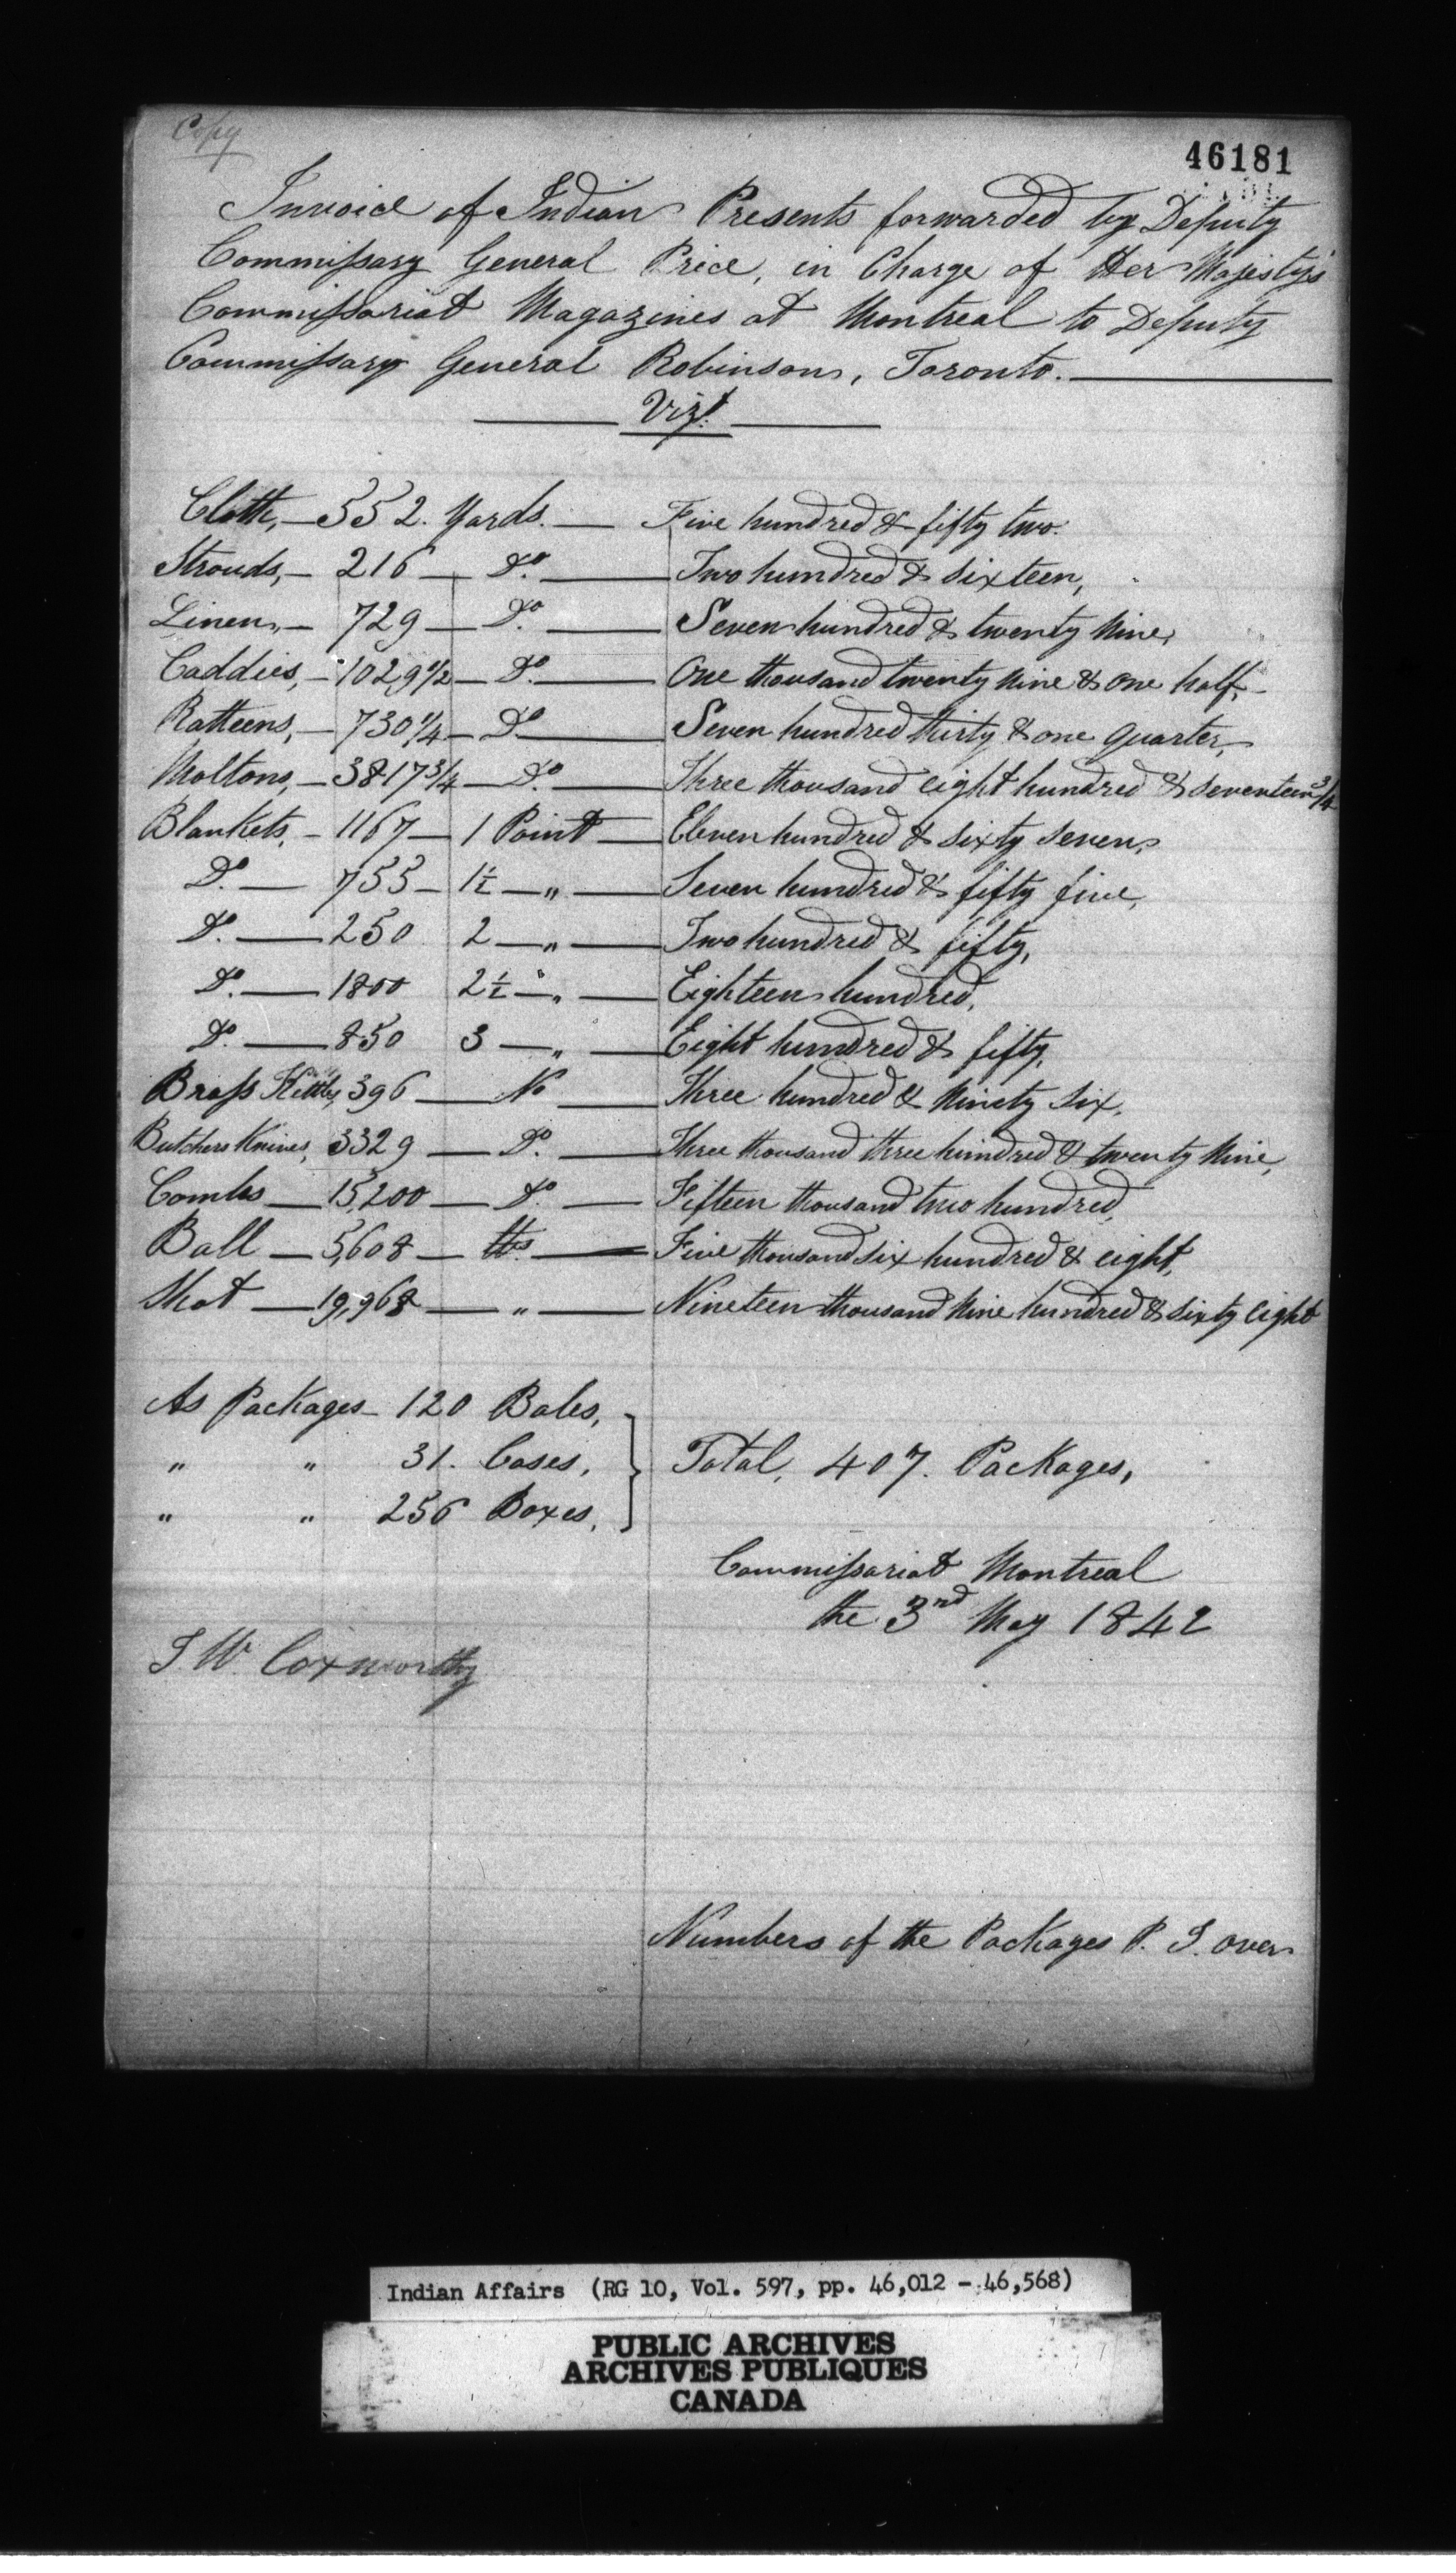 Copy
46181
Invoice of Indian Presents forwarded by Deputy
Commissary General Price, in Charge of Her Majesty's
Commissariat Magazines at Montreal to Deputy
Commissary General Robinson, Toronto.
Vizt.
Cloth, — 552. Yards. — Five hundred & fifty two.
Strouds, — 216 — Do. — Two hundred & sixteen,
Linen, — 729 — Do. — Seven hundred & twenty Nine,
Caddies, — 1029 1/2 — Do. — One thousand twenty nine & one half, —
Ratteens, — 730 1/4 — Do — Seven hundred thirty & one quarter,
Moltons, — 3817 3/4 — Do. — Three thousand eight hundred & seventeen 3/4
Blankets, — 1167 — 1 Point — Eleven hundred & sixty seven,
Do. — 755 — 1 1/2 — „ — Seven hundred & fifty five,
Do. — 250 2 — „ — Two hundred & fifty,
Do. — 1800 2 1/2 — „ — Eighteen hundred,
Do. — 850 3 — „ — Eight hundred & fifty,
Brass Kettles, 396 — No — Three hundred & Ninety six,
Butchers Knives, 3329 — Do. — Three thousand three hundred & twenty Nine,
Combs — 15,200 — Do. — Fifteen thousand two hundred,
Ball — 5,608 — lbs — Five thousand six hundred & eight,
Shot — 19,968 — „ — Nineteen thousand Nine hundred & sixty eight
As Packages — 120 Bales,
„ „ 31. Cases, } Total, 407. Packages,
„ „ 256 Boxes,
Commissariat Montreal
the 3nd May 1842
T. W. Coxworthy
Numbers of the Packages P. T. over
Indian Affairs (RG 10, Vol. 597, pp. 46,012 - 46,568)
PUBLIC ARCHIVES
ARCHIVES PUBLIQUES
CANADA